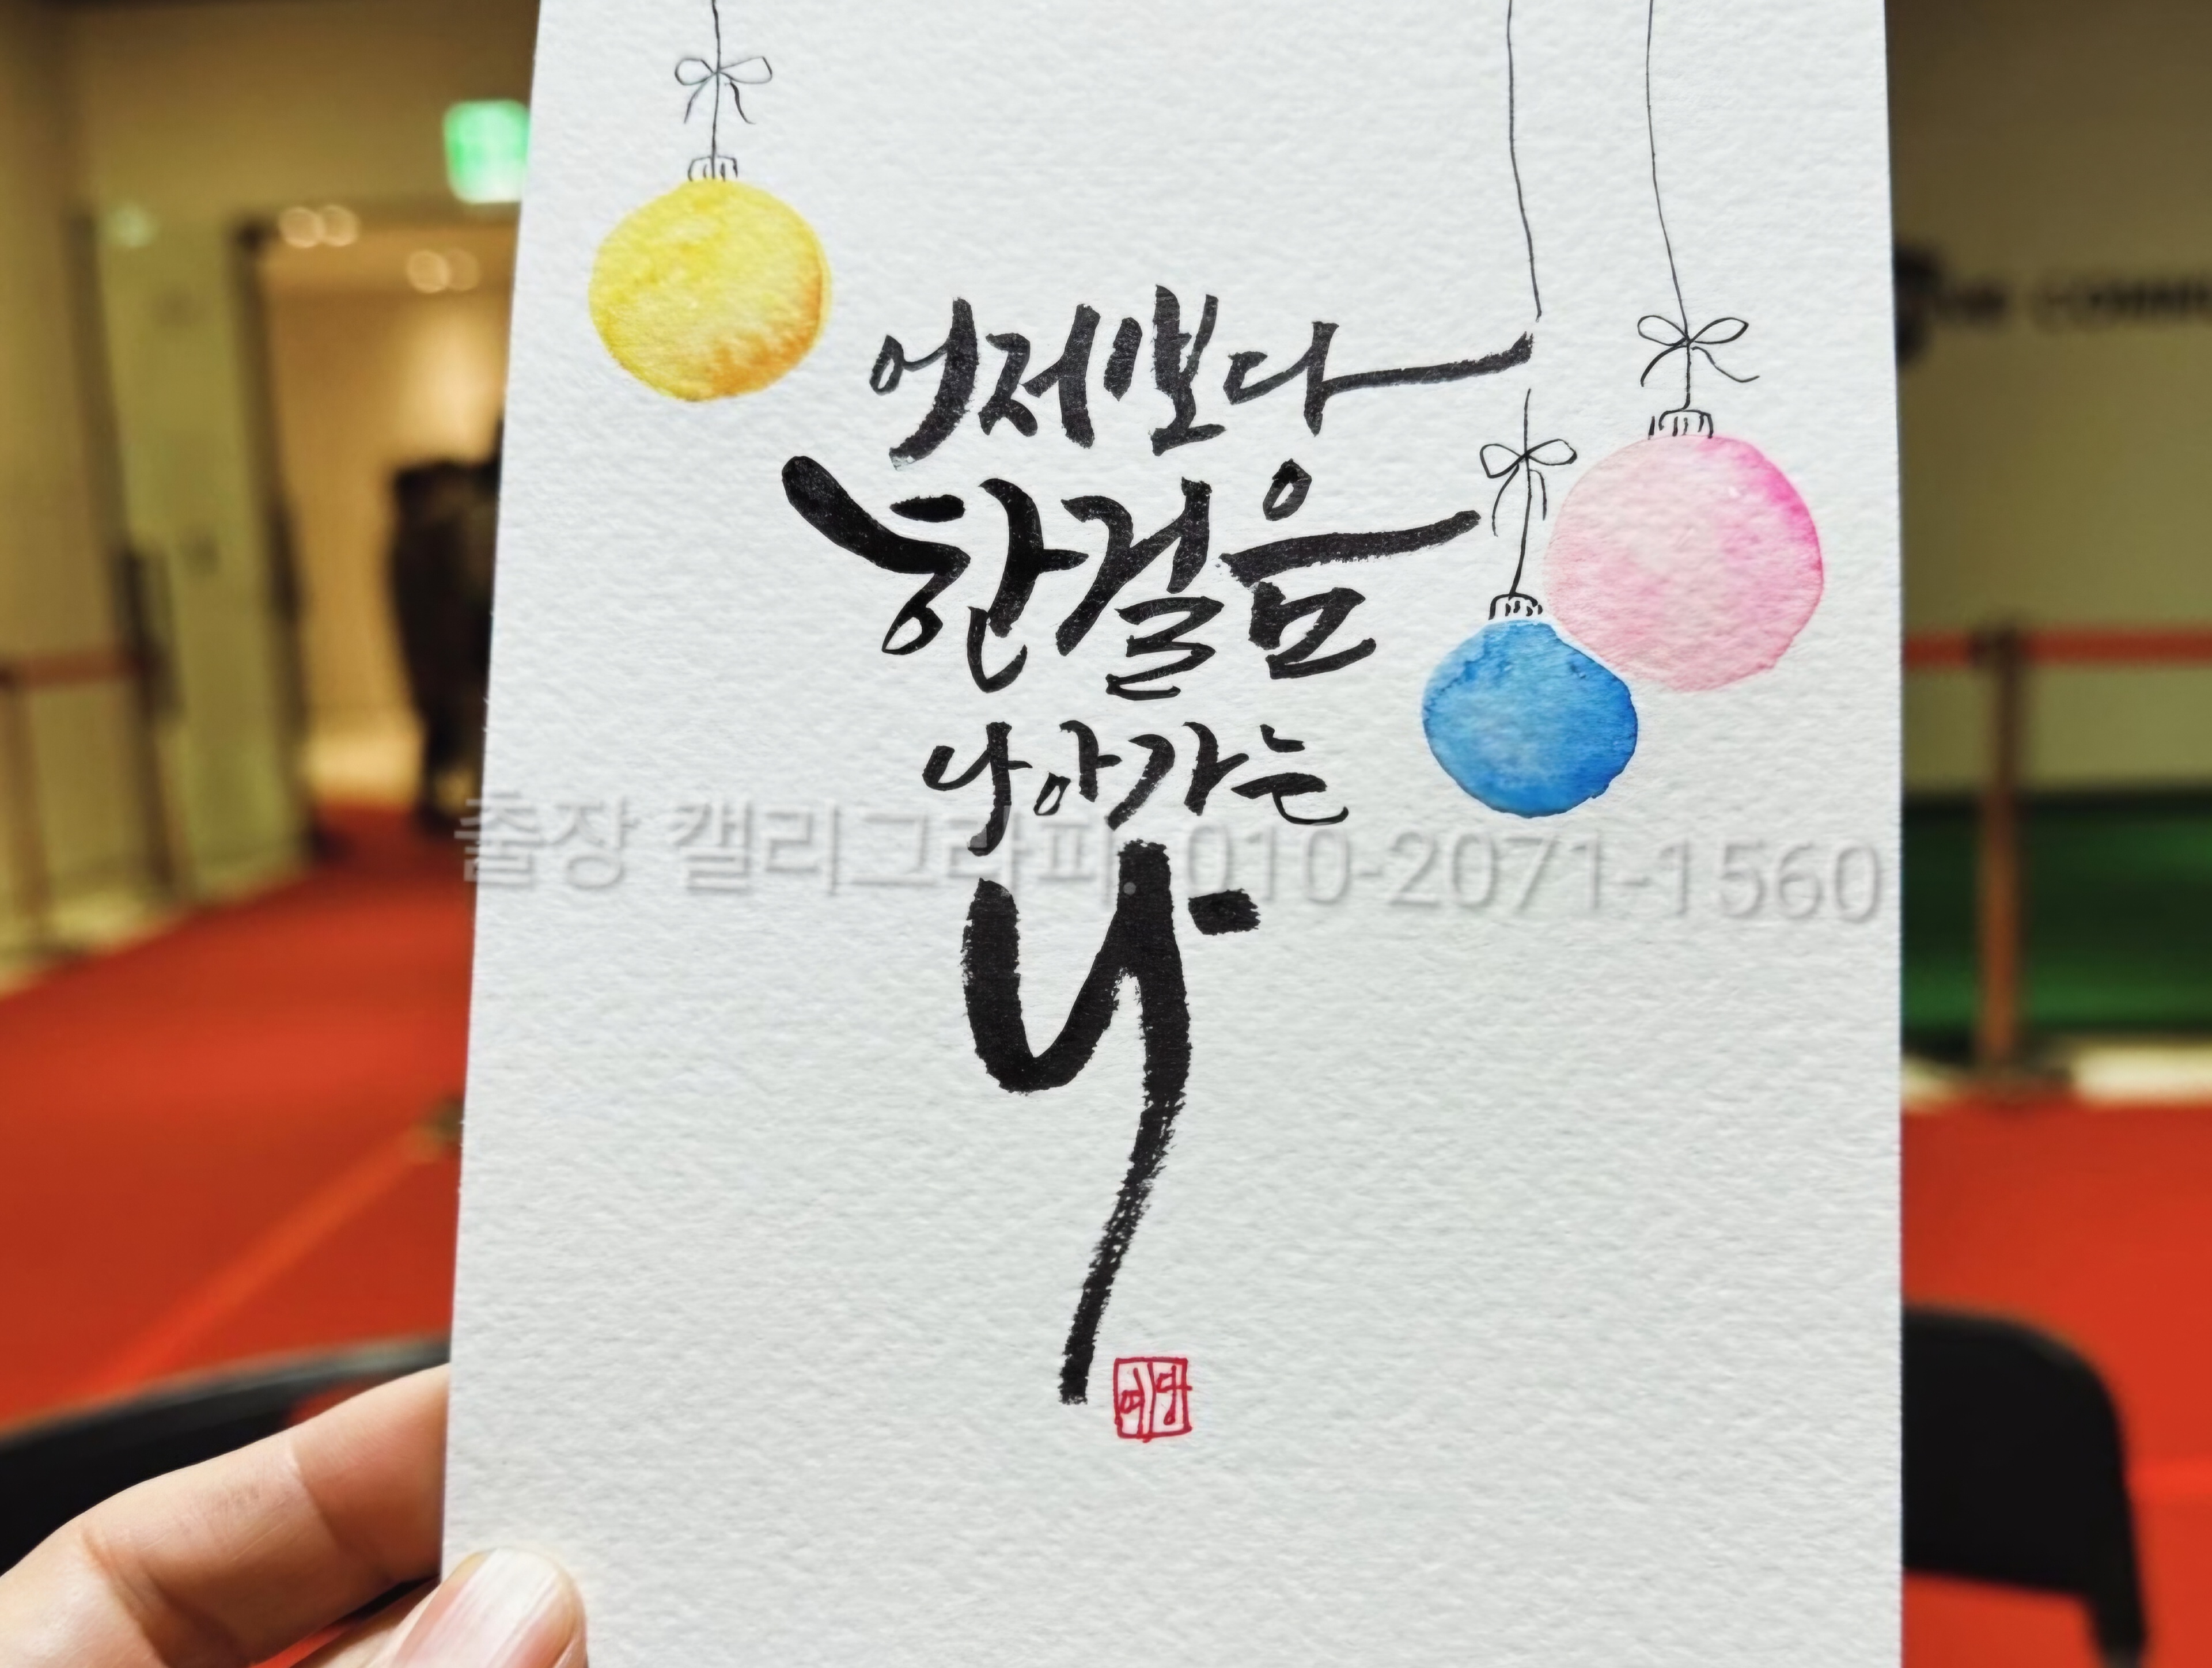 어제보다
한걸음
나아가는
나
출장 캘리그라피. 010-2071-1560